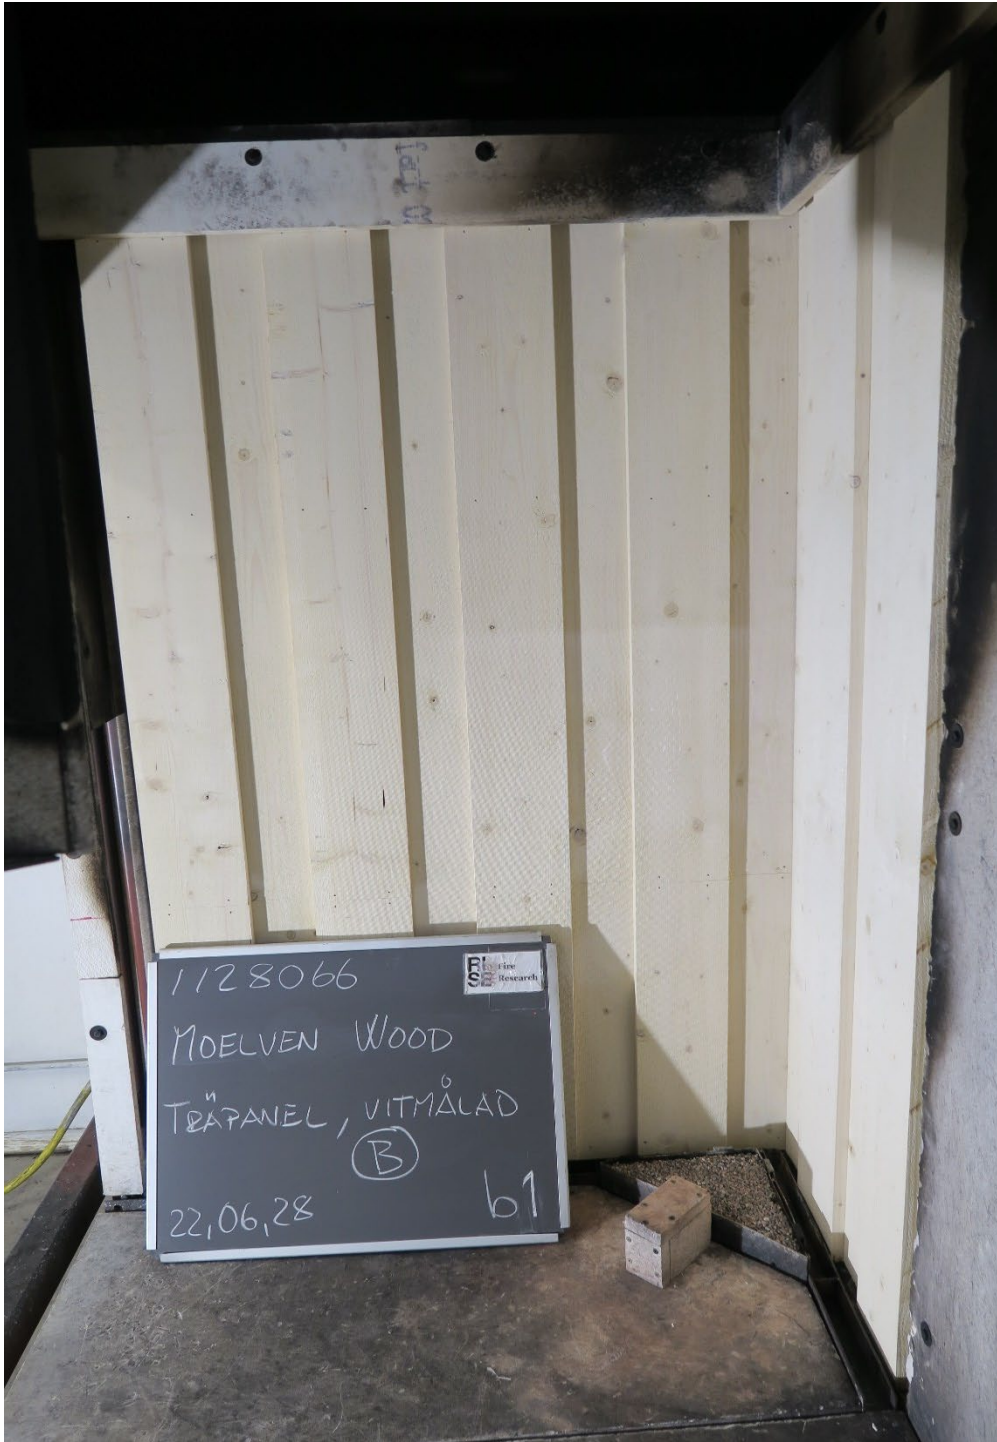 1128066
RI
SE
Fire
Research
MOELVEN WOOD
TRÄPANEL, VITMÅLAD
B
22,06,28
b1